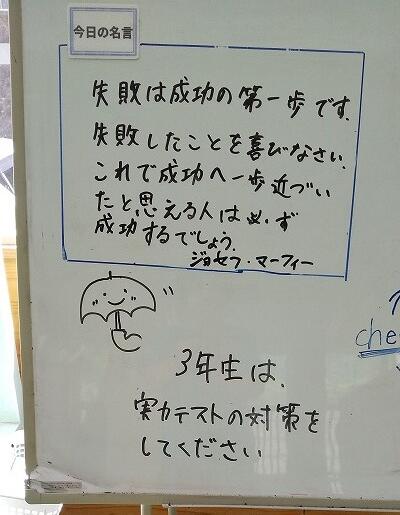 今日の名言
失敗は成功の第一歩です.
失敗したことを喜びなさい.
これで成功へ一歩近づい
たと思える人は必ず
成功するでしょう.
ジョセフ・マーフィー
3年生は、
実力テストの対策を
してください
che